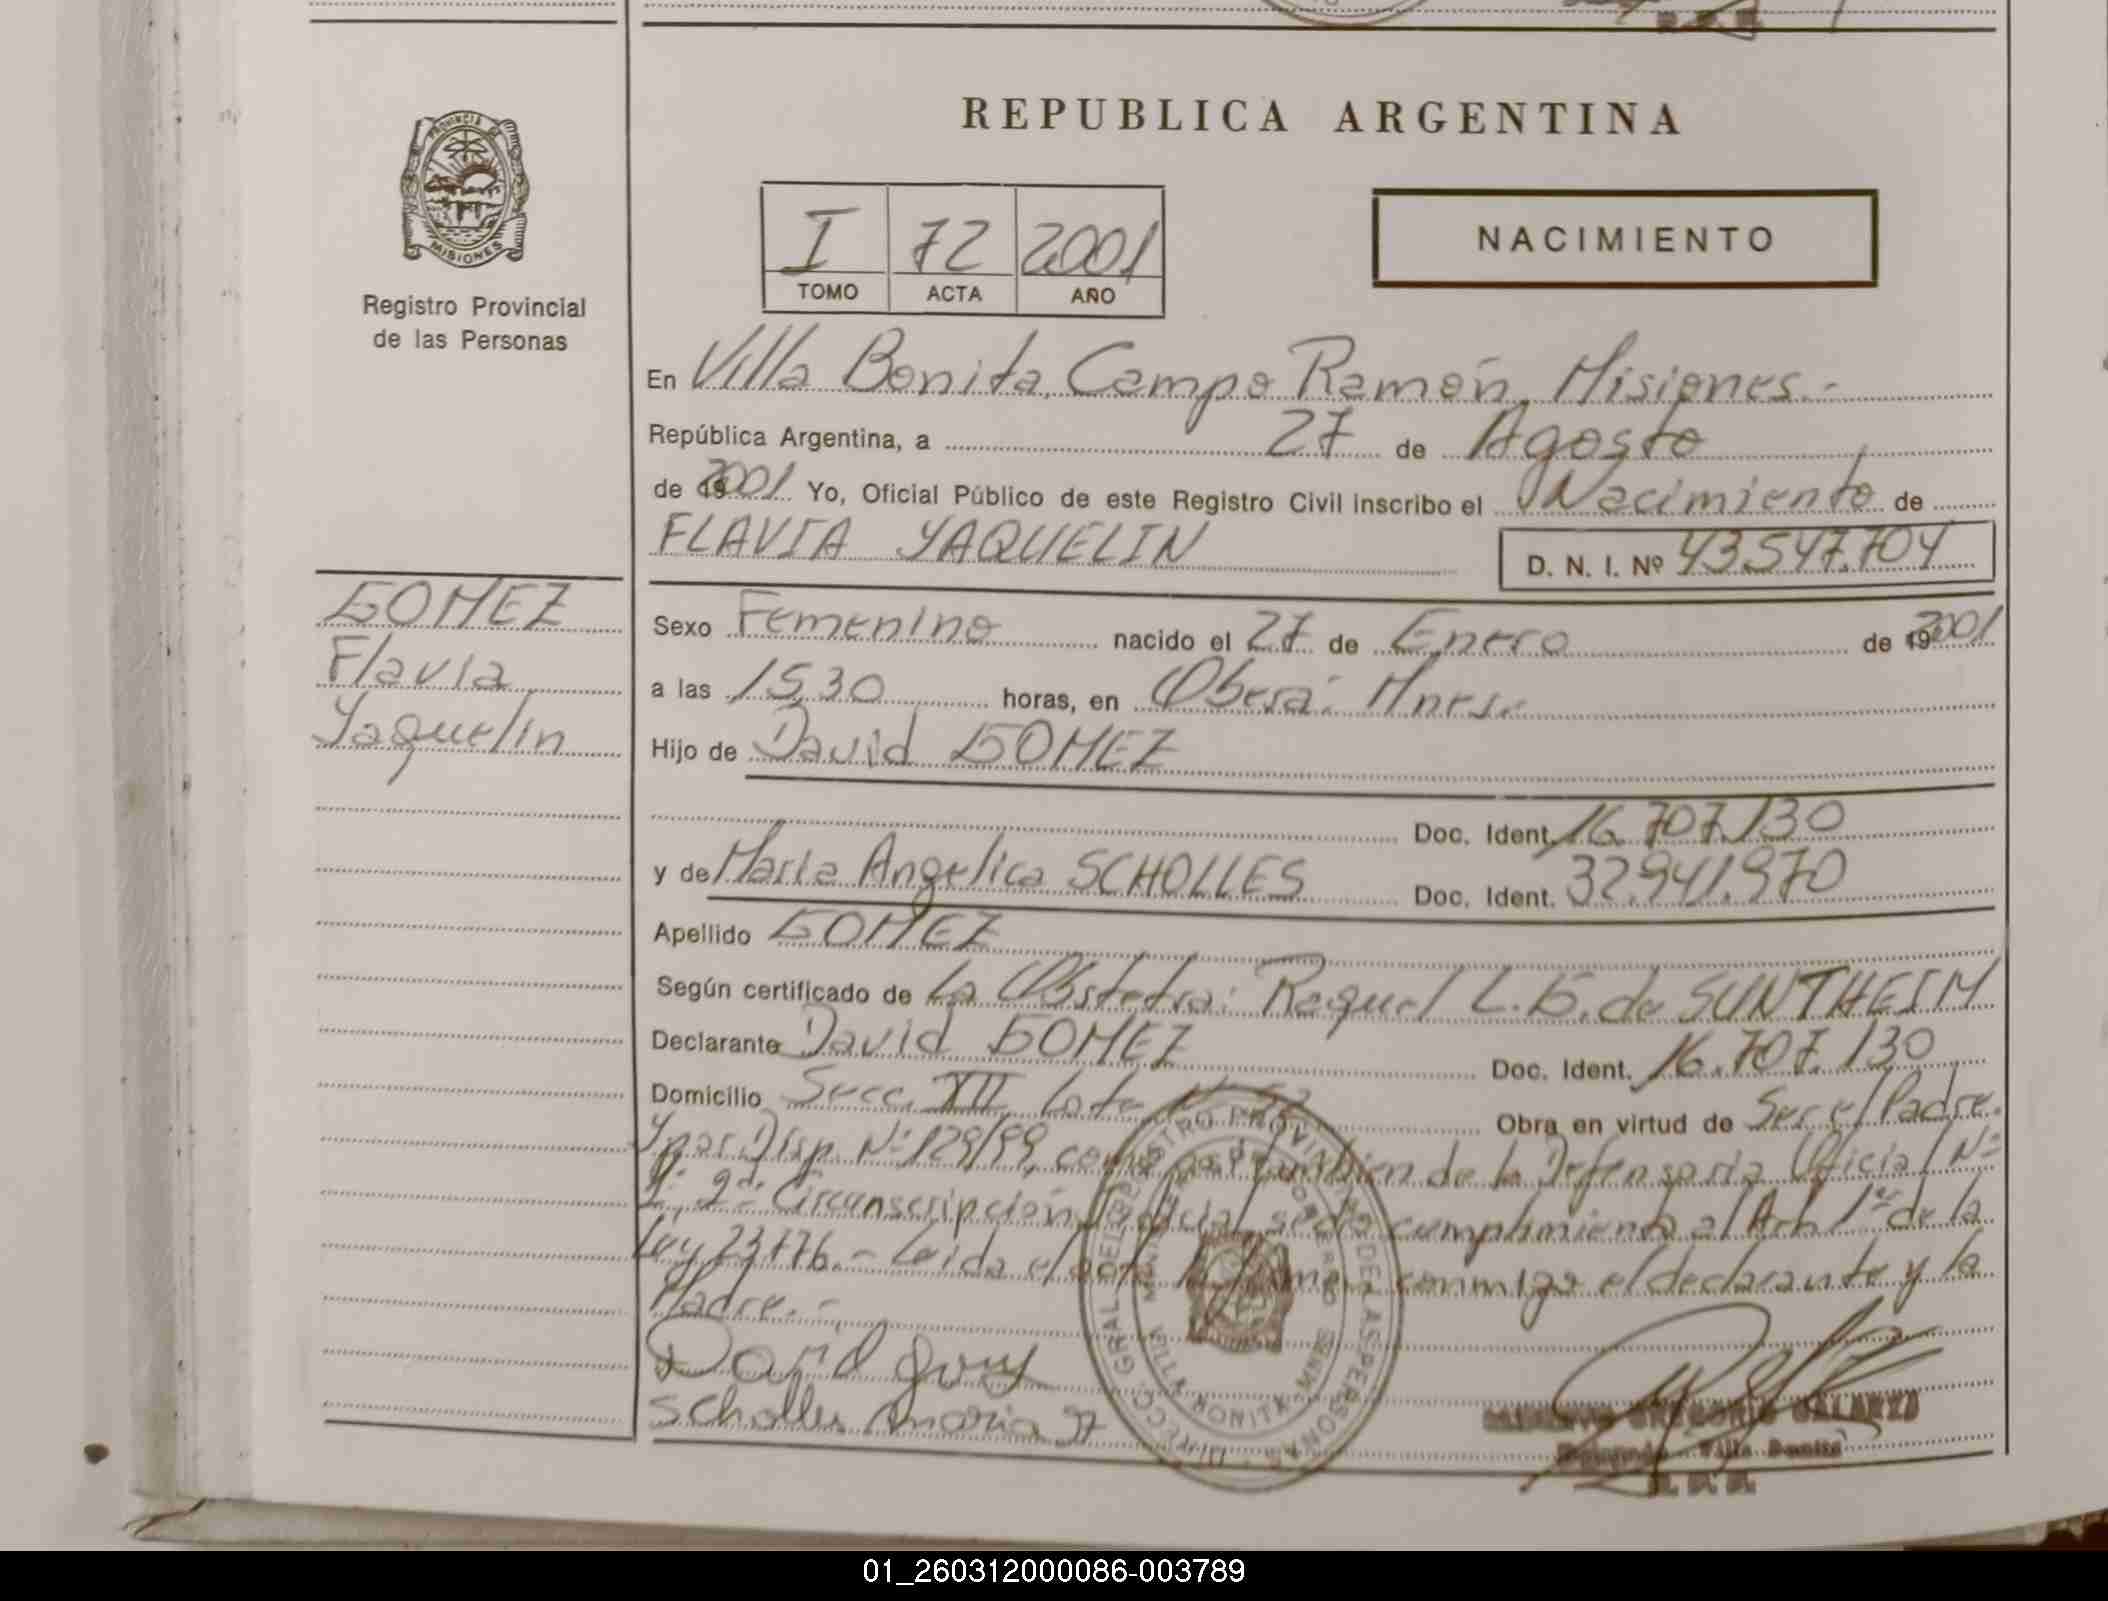 REPUBLICA ARGENTINA
PROVINCIA DE
MISIONES
Registro Provincial
de las Personas
I 72 2001
TOMO ACTA AÑO
NACIMIENTO
En Villa Bonita, Campo Ramón, Misiones.-
República Argentina, a 27 de Agosto
de 2001 Yo, Oficial Público de este Registro Civil inscribo el Nacimiento de
FLAVIA YAQUELIN
D. N. I. Nº 43.547.704
GOMEZ
Flavia
Yaquelin
Sexo Femenino nacido el 27 de Enero de 19 2001
a las 15,30 horas, en Oberá. Mnes.
Hijo de David GOMEZ
Doc. Ident. 16.707.130
y de Maria Angelica SCHOLLES Doc. Ident. 32.941.970
Apellido GOMEZ
Según certificado de La Obstetra: Raquel L. G. de SUNTHEIM
Declarante David GOMEZ Doc. Ident. 16.707.130
Domicilio Secc. XII Lote Obra en virtud de Ser el Padre.
Y por Disp. Nº 129/99, como también de la Defensoria Oficial Nº
2º Circunscripción Judicial, se dá cumplimiento al Art. 1º de la
Ley 23776.- Leida el acta la firman conmigo el declarante y la
Madre.-
Scholles Maria
Villa Bonita
01_260312000086-003789